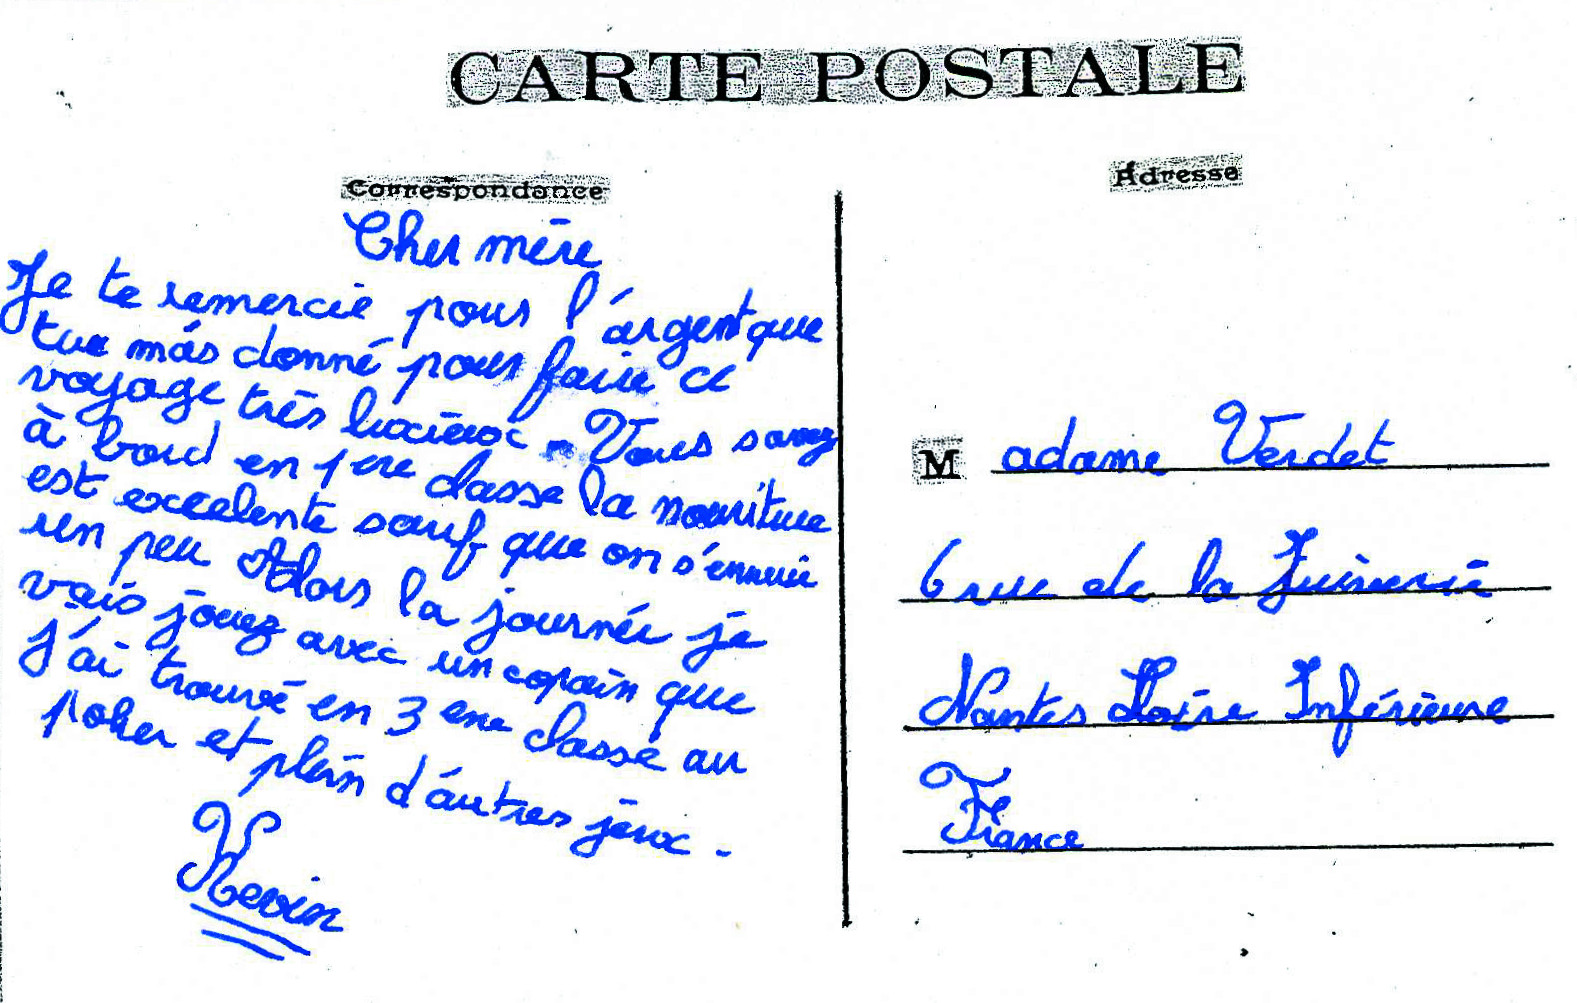 CARTE POSTALE
Correspondance
Cher mère
Je te remercie pour l'argent que
tu m'as donné pour faire ce
voyage très luxieux - Vous savez
à bord en 1ere classe la nouriture
est excelente sauf que on s'ennuie
un peu Alors la journée je
vais jouez avec un copain que
j'ai trouvé en 3 eme classe au
poker et plein d'autres jeux -
Kevin
Adresse
Madame Verdet
6 rue de la Juiverie
Nantes Loire Inférieure
France